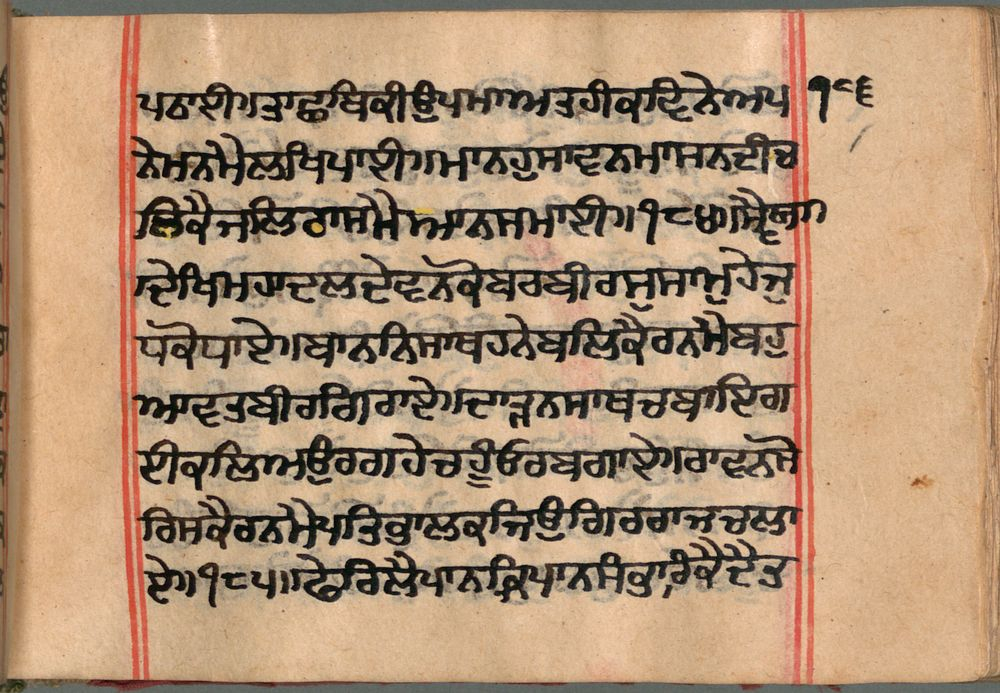 ਪਠਾਈ॥ਤਾਛਬਿਕੀਉਪਮਾਅਤਹੀਕਵਿਨੇਅਪ ੧੮੬
ਨੇਮਨਮੈਲਖਿਪਾਈ॥ਮਾਨਹੁਸਾਵਨਮਾਸਨਦੀਚ
ਲਿਕੈਜਲਿਰਾਸਮੈਆਨਸਮਾਈ॥੧੮੪॥ਸ੍ਵੈਯਾ॥
ਦੇਖਿਮਹਾਦਲਦੇਵਨਕੋਬਰਬੀਰਸੁਸਾਮੁਹੇਜੁ
ਧਕੋਧਾਏ॥ਬਾਨਨਿਸਾਥਹਨੇਬਲਿਕੈਰਨਮੈਬਹੁ
ਆਵਤਬੀਰਗਿਰਾਏ॥ਦਾੜਨਸਾਥਚਬਾਇਗ
ਈਕਲਿਅਉਰਗਹੇਚਹੂੰਓਰਬਗਾਏ॥ਰਾਵਨਸੋ
ਰਿਸਕੈਰਨਮੈਪਤਿਭਾਲਕਜਿਉਗਿਰਰਾਜਚਲਾ
ਏ॥੧੮੫॥ਫੇਰਿਲੈਪਾਨਕ੍ਰਿਪਾਨਸੰਭਾਰਿਕੈਦੈਤ